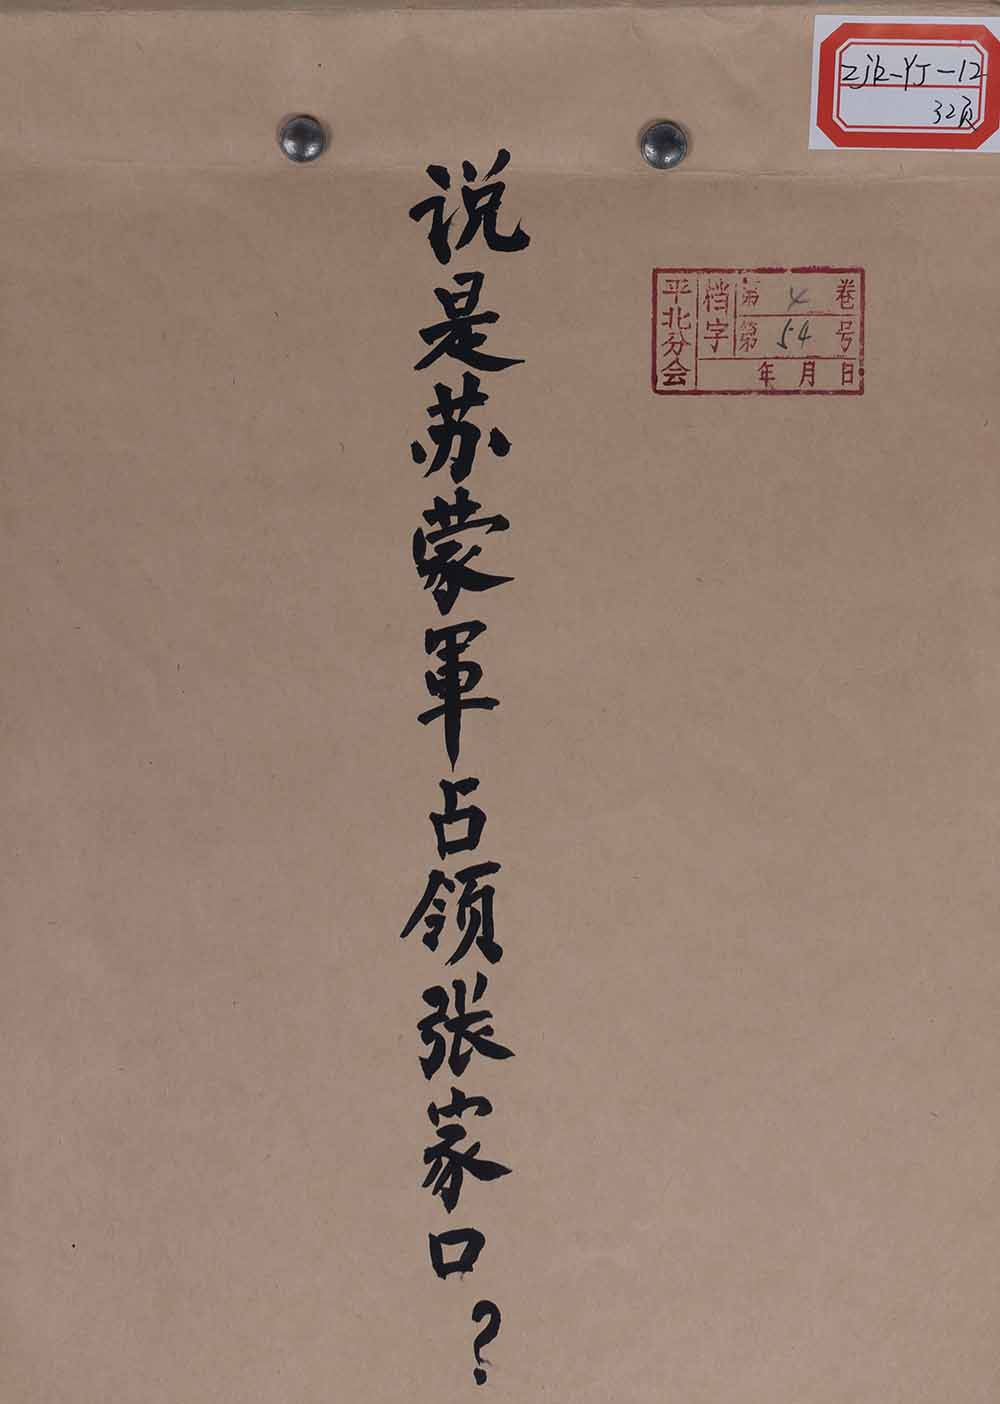 ZJK-YJ-12
32页
说是苏蒙軍占领张家口？
平北分会
档字
第 4 卷
第 54 号
年 月 日